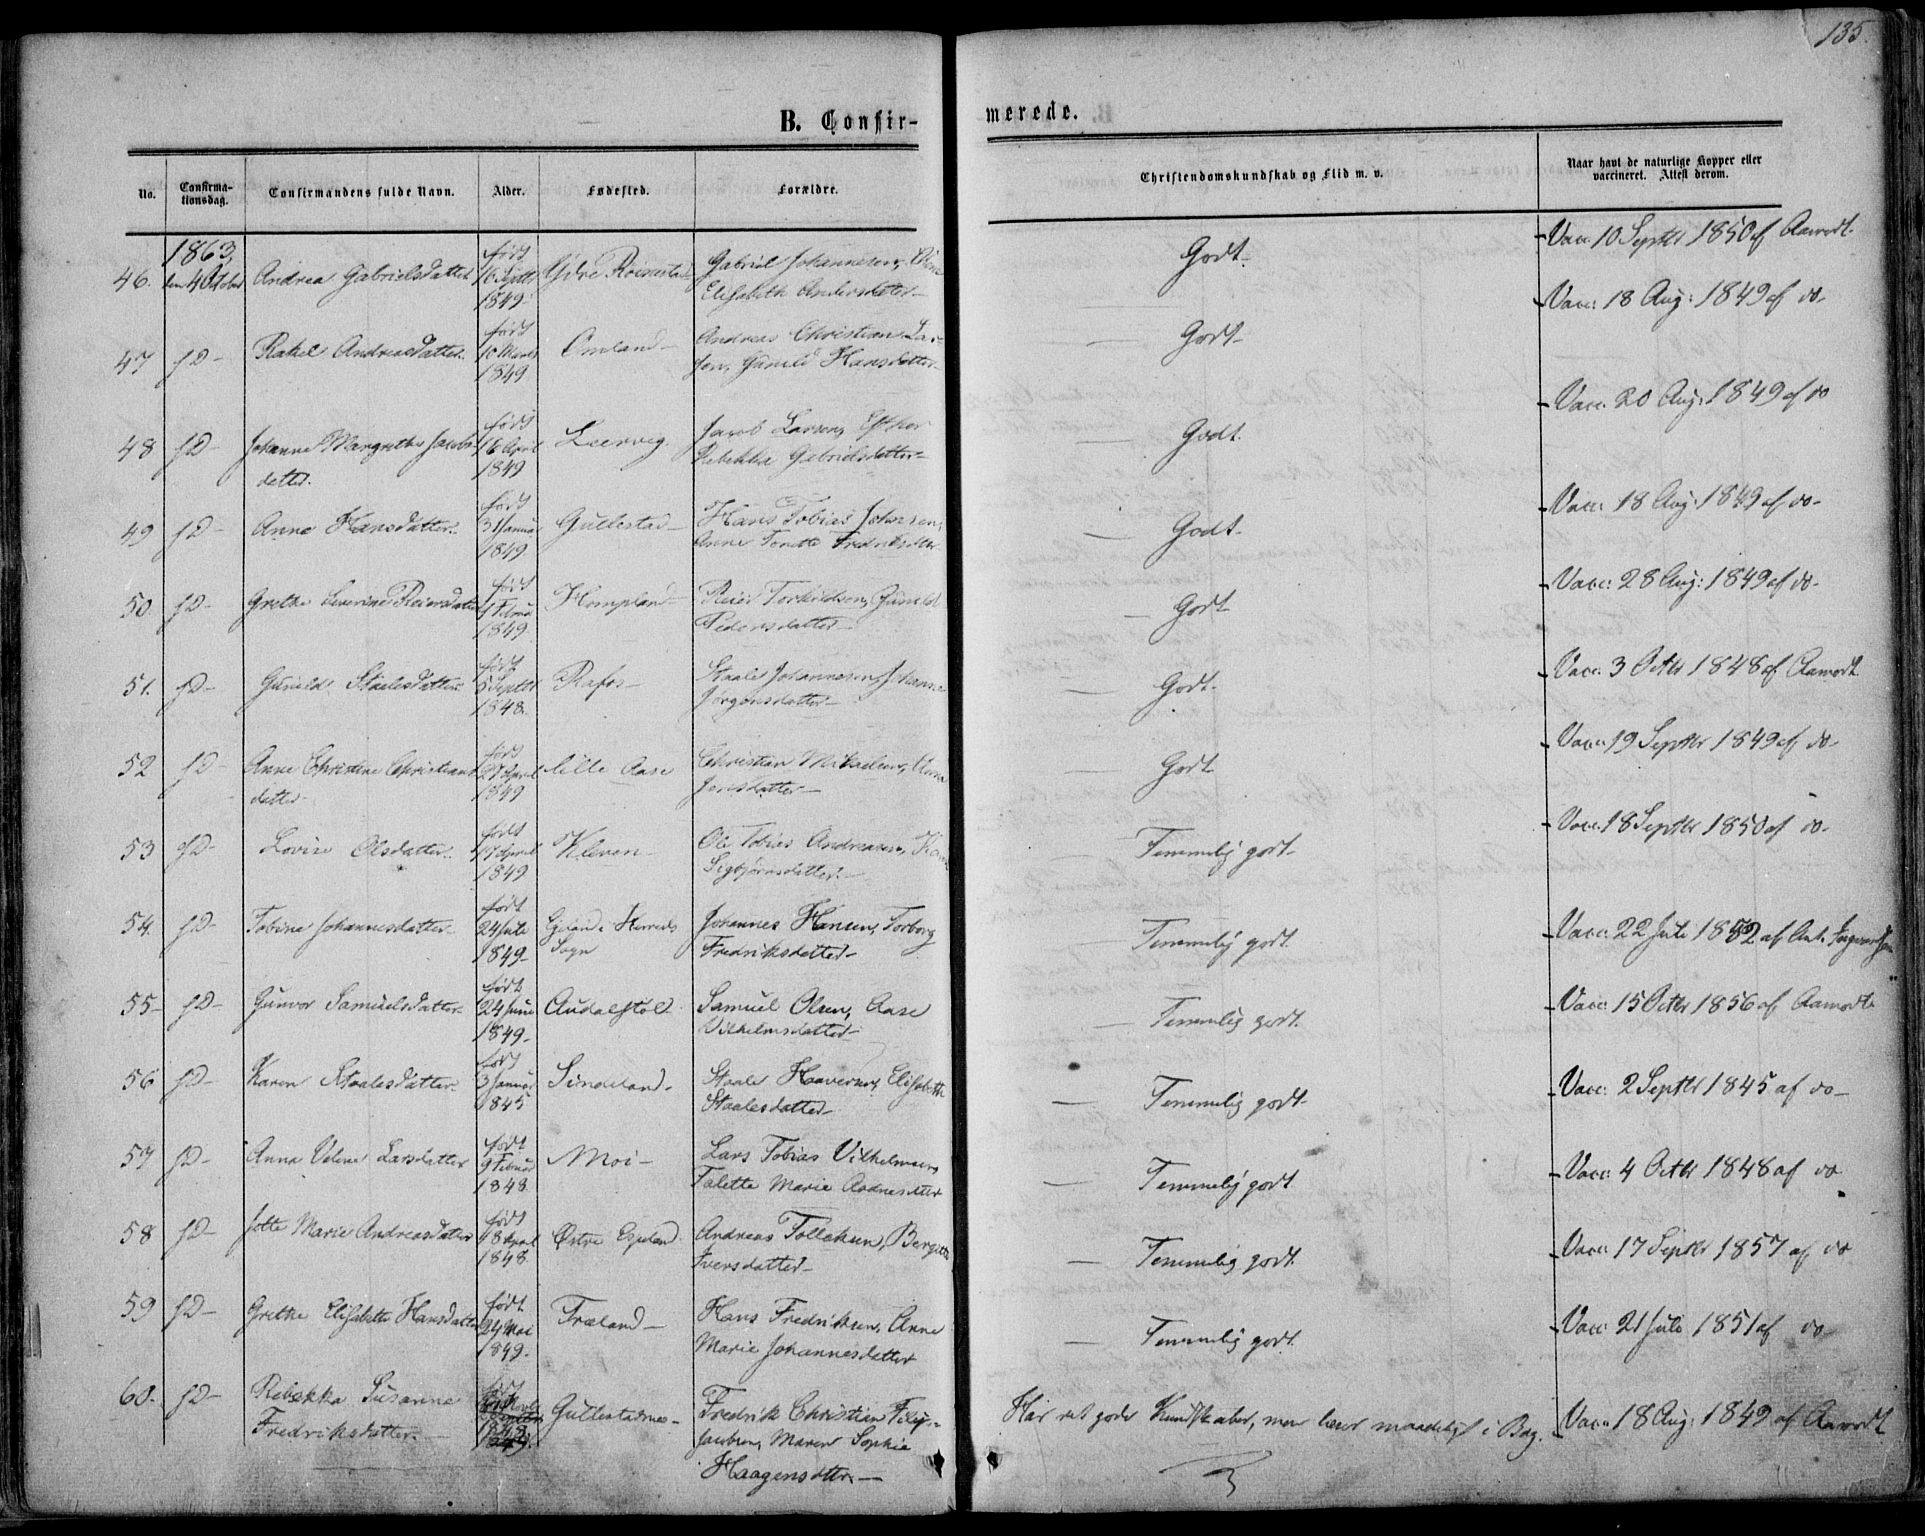 135.
B. Confir-
merede.
No.
Confirma-
tionsdag.
Confirmandens fulde Navn.
Alder.
Fødested.
Forældre.
Christendomskundskab og Flid m. v.
Naar havt de naturlige Kopper eller
vaccineret. Attest derom.
1863,
født
46. den 4 Octobr Andrea Gabrielsdatter 16 Septbr Gabriel Johannesen,
1849 Elisabeth Andersdatter
Godt.
Vacc. 10 Septbr 1850 af Aamodt.
født
47 do Rakel Andreasdatter. 10 Marts Omland Andreas Christian Lar-
1849 sen, Gunild Hansdatter
Godt
Vacc: 18 Aug: 1849 af do
født
48 do Johanne Margrethe Jacobs- 16 April Leervig. Jacob Larsen, Esther
datter. 1849 Rebekka Gabrielsdatter
Godt.
Vacc. 20 Aug: 1849 af do
født
49 do Anne Hansdatter. 31 Januar Gullestad Hans Tobias Johnsen,
1849 Anne Tonette Fredriksdtter
Godt.
Vacc: 18 Aug: 1849 af do
født
50. do Grethe Severine Reiersdatter Februar Hompland Reier Torkildsen, Gunild
1849. Pedersdatter
Godt
Vacc: 28 Aug: 1849 af do
født
51. do Gunild Staalesdatter. 5 Septbr Rafos Staale Johannesen, Johanne
1848. Jørgensdatter
Godt.
Vacc: 3 Octbr 1848 af Aamodt
født
52 do Anne Christine Christians- 27 April Lille Aase Christian Mikaelsen, Anna
datter 1849 Jensdatter
Godt
Vacc. 19 Septbr 1849 af do
født
53 do Lovise Olsdatter. 17 April Kleven Ole Tobias Andreasen,
1849 Sigbjørnsdatter.
Temmelig godt
Vacc. 18 Septbr 1850 af do
født
54. do Tobine Johannesdatter 24 Juli Egeland i Herreds Johannes Hansen, Torborg
1849 Sogn Fredriksdatter
Temmelig godt.
Vacc: 22 Juli 1852 af Ant. Ingvardsen
født
55 do Gunvor Samuelsdatter 24 Juni Audalstøl Samuel Olsen, Aase
1849 Vilhelmsdatter
Temmelig godt.
Vacc: 15 Octbr 1856 af Aamodt
født
56 do Karen Staalesdatter. 3 Januar Sindeland. Staale Haaversen, Elisabeth
1845 Staalesdatter
Temmelig godt.
Vacc: 2 Septbr 1845 af do
født
57 do Anna Velene Larsdatter 9 Februar Moi Lars Tobias Vilhelmsen,
1848 Talette Marie Aadnesdtter
Temmelig godt.
Vacc: 4 Octbr 1848 af do
født
58 do Jotte Marie Andreasdatter 18 April Østre Egeland Andreas Tollaksen, Bergitte
1848 Iversdatter
Temmelig godt.
Vacc: 17 Septbr 1857 af do
født
59 do Grethe Elisabeth Hansdatter 24 Mai Træland Hans Fredriksen, Anne
1849. Marie Johannesdatter
Temmelig godt.
Vacc: 21 Juli 1851 af do
født
60. do Rebekka Susanne Gullestadnes Fredrik Christian Filip
Fredriksdatter. Jacobsen, Maren Sophie
Haagensdtter.
Har ret gode Kundskaber, men læser maadeligt i Bog.
Vacc. 18 Aug: 1849 af Aamodt